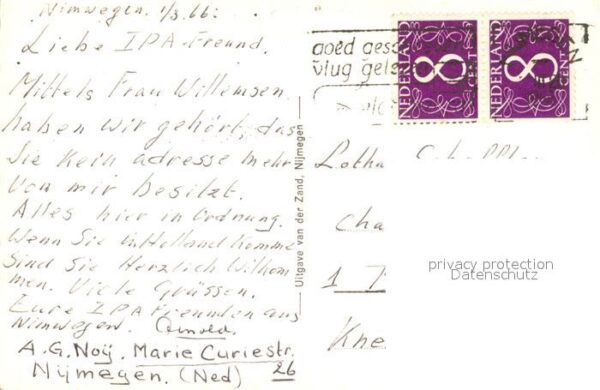 Nimwegen. 1/3.66:
Liebe IPA-Freund.
Mittels Frau Willemsen.
haben wir gehört, das
Sie Kein adresse mehr
von mir besitzt.
Alles hier in Ordnung.
Wenn Sie in Holland Komme
Sind Sie Herzlich Wilkom
men. Viele Grüssen.
Eure IPA Freunden aus
Nimwegen. Arnold.
A.G. Noÿ. Marie Curiestr.
26
Nijmegen. (Ned)
Uitgave van der Zand, Nijmegen
goed gesc
vlug gele
NEDERLAND
8
CENT
NEDERLAND
8
CENT
Lotha
Cha
1
Kne
privacy protection
Datenschutz